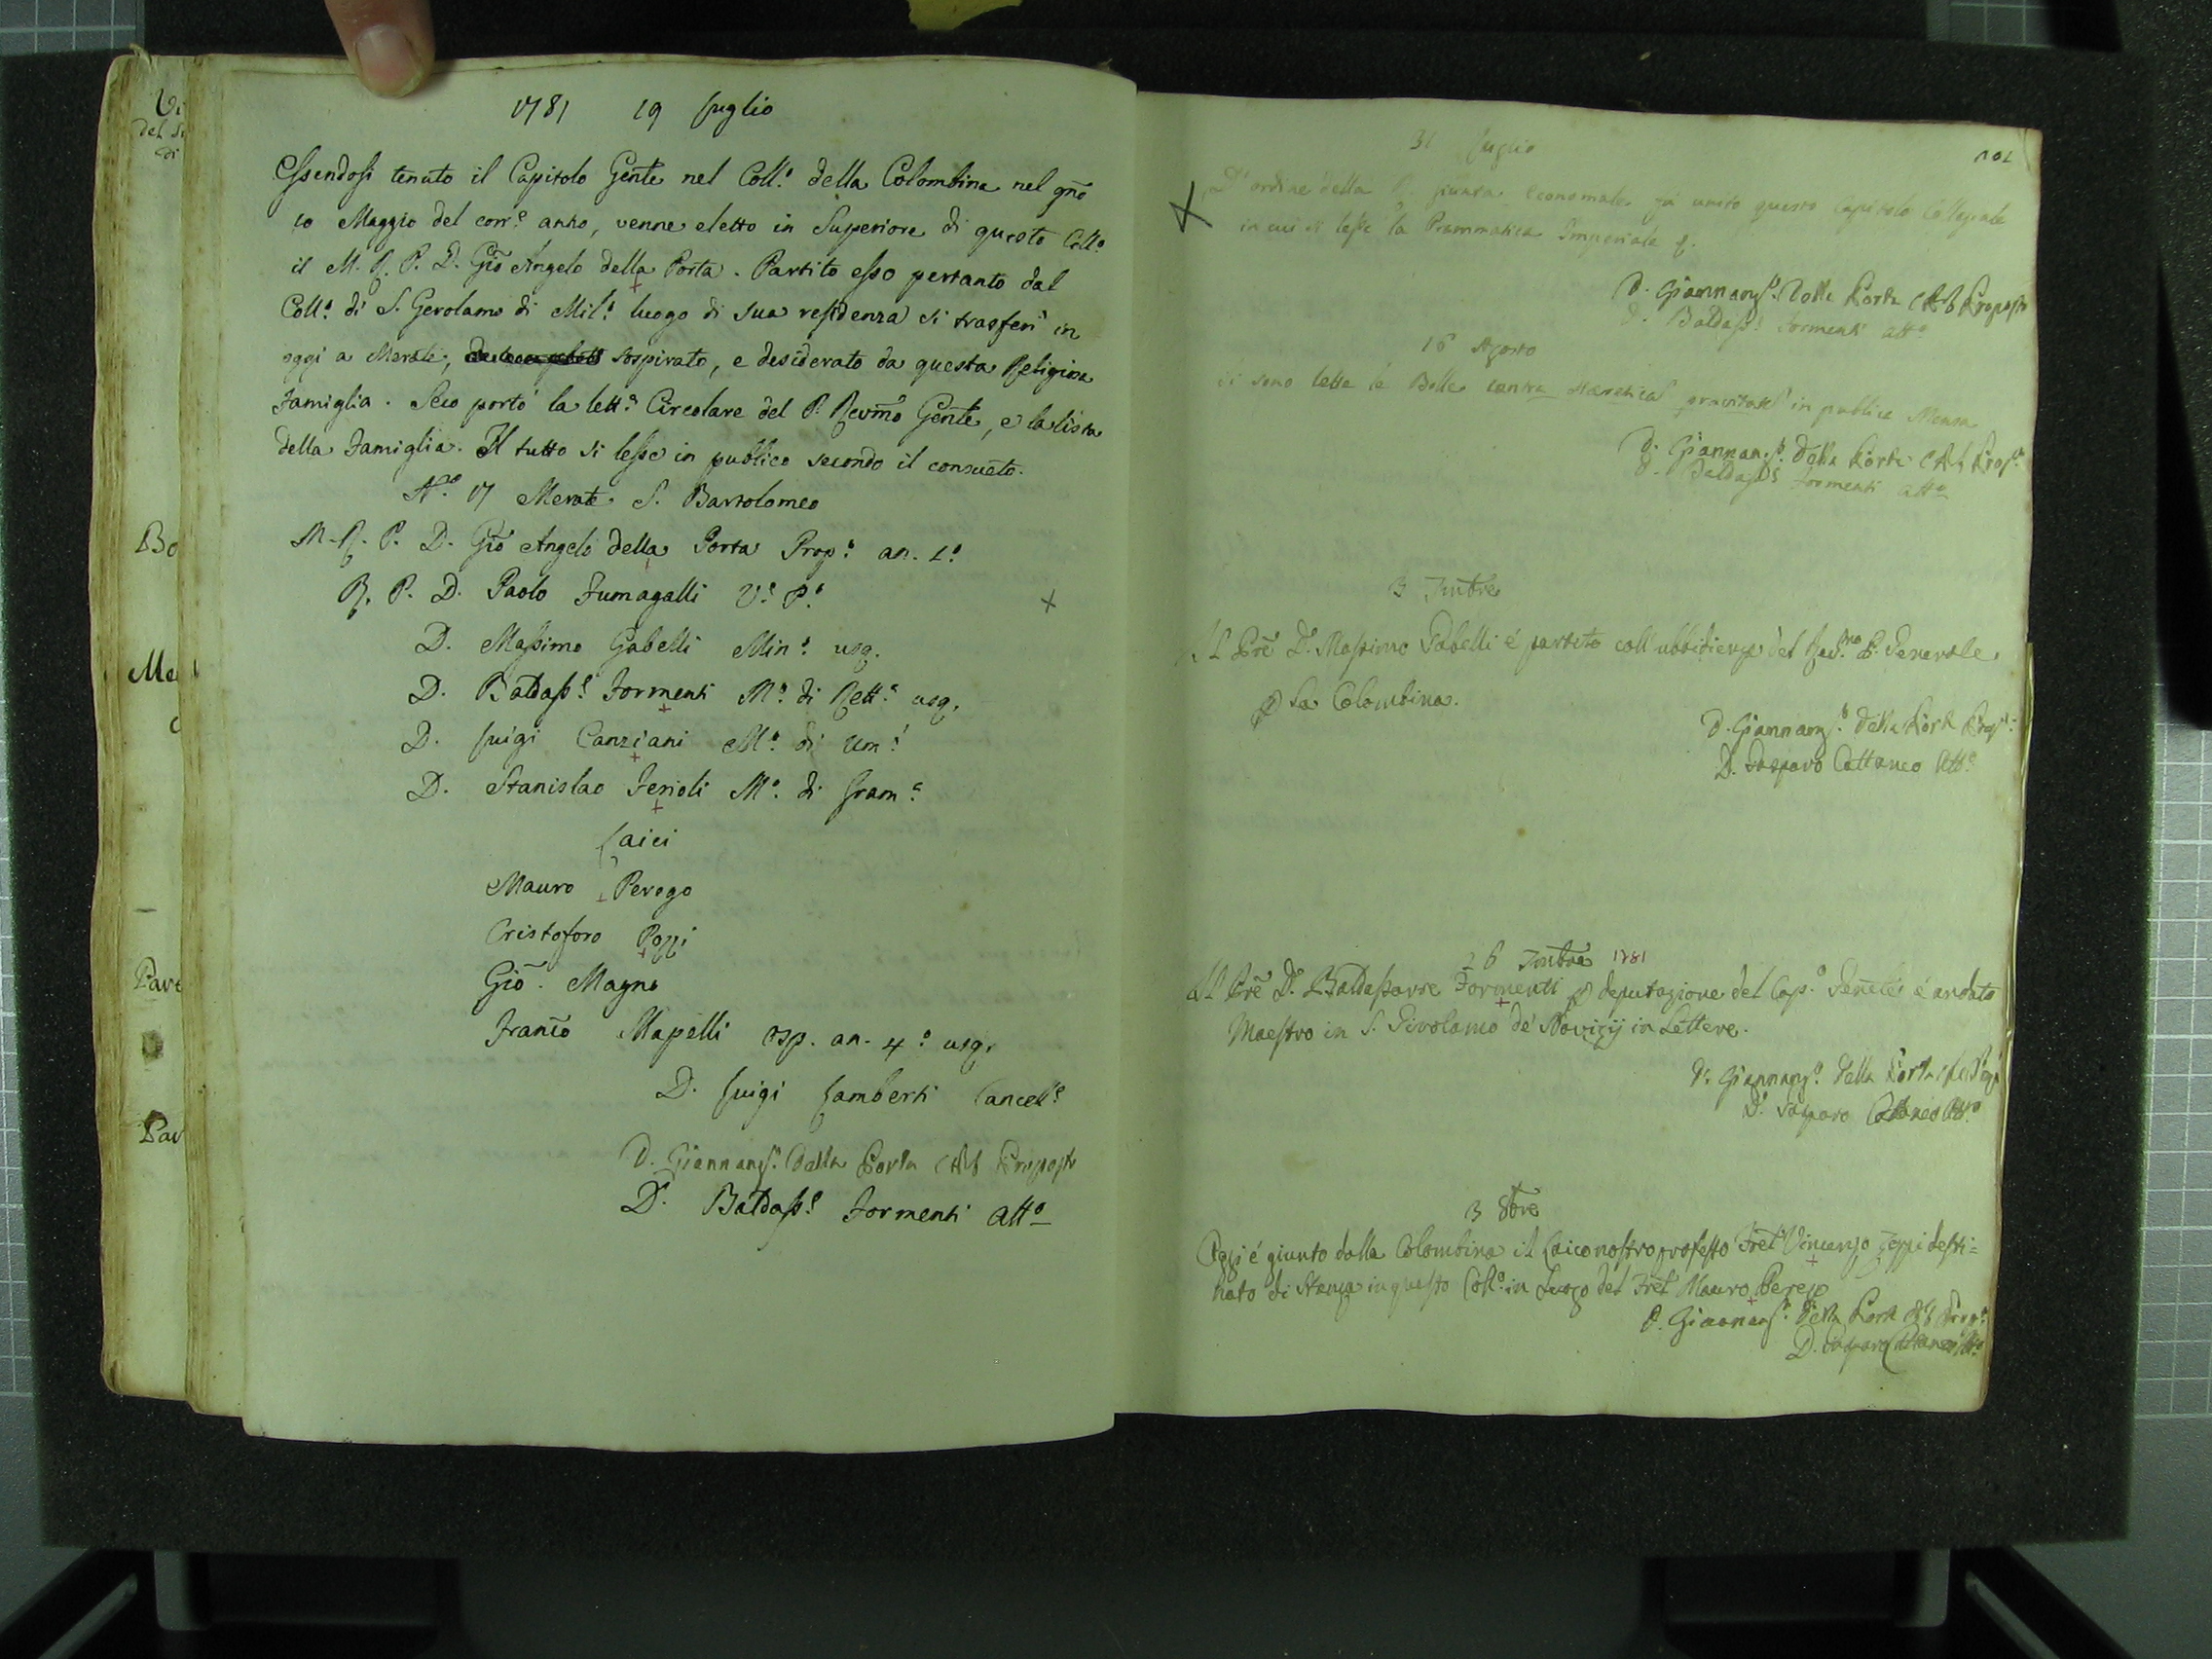 1781 19 Luglio
Essendosi tenuto il Capitolo Gen̄le nel Coll.º della Colombina nel gn̄o
10 Maggio del corr.e anno, venne eletto in Superiore di questo Coll.º
il M. R. P. D. Gio Angelo della Porta. Partito esso pertanto dal
Coll.º di S. Gerolamo di Mil.º luogo di sua residenza si trasferì in
oggi a Merate, sospirato, e desiderato da questa Religiosa
Famiglia. Seco portò la lett.a Circolare del P. Revm̄o Gen̄le, e la lista
della Famiglia. Il tutto si lesse in publico secondo il consueto.
N.º 17 Merate S. Bartolomeo
M. R. P. D. Gio Angelo della Porta Prop.º an. 1.º
R. P. D. Paolo Fumagalli V.e P.º
D. Massimo Gabelli Min.º usq.
D. Baldass.e Formenti M.º di Rett.a usq.
D. Luigi Canziani M.º di Um.à
D. Stanislao Ferioli M.º di Gram.a
Laici
Mauro Perego
Cristoforo Pozzi
Gio. Magno
Franc̄o Mapelli osp. an. 4.º usq.
D. Luigi Lamberti Cancell.e
D. Giannang.º Della Porta CRS Proposto
D. Baldass.e Formenti Att.o
102
31 Luglio
D'ordine della R. giunta economale fu unito questo Capitolo Collegiale
in cui si lesse la Prammatica Imperiale
D. Giannang.º Della Porta CRS Proposto
D. Baldass.e Formenti Att.o
16 Agosto
Si sono lette le Bolle contra haereticas pravitates in publica Mensa
D. Giannang.º Della Porta CRS Prop.º
D. Baldass.e Formenti Att.o
3 7mbre
Il P̄re D. Massimo Gabelli é partito coll'ubbidienza del Rev.mo P. Generale
P la Colombina.
D. Giannang.º Della Porta Prop.º
D. Gasparo Cattaneo Att.o
26 7mbre 1781
Il P̄re D. Baldassarre Formenti P deputazione del Cap.º Gen̄le é andato
Maestro in S. Girolamo de' Novizij in Lettere.
D. Giannang.º Della Porta
D. Gasparo Cattaneo Att.o
3 8bre
Oggi é giunto dalla Colombina il Laico nostro professo Frēl Vincenzo Zoppi desti=
nato di stanza in questo Coll.º in Luogo del Frēl Mauro Perego
D. Giannang.º Della Porta CRS Prop.º
D. Gasparo Cattaneo Att.o